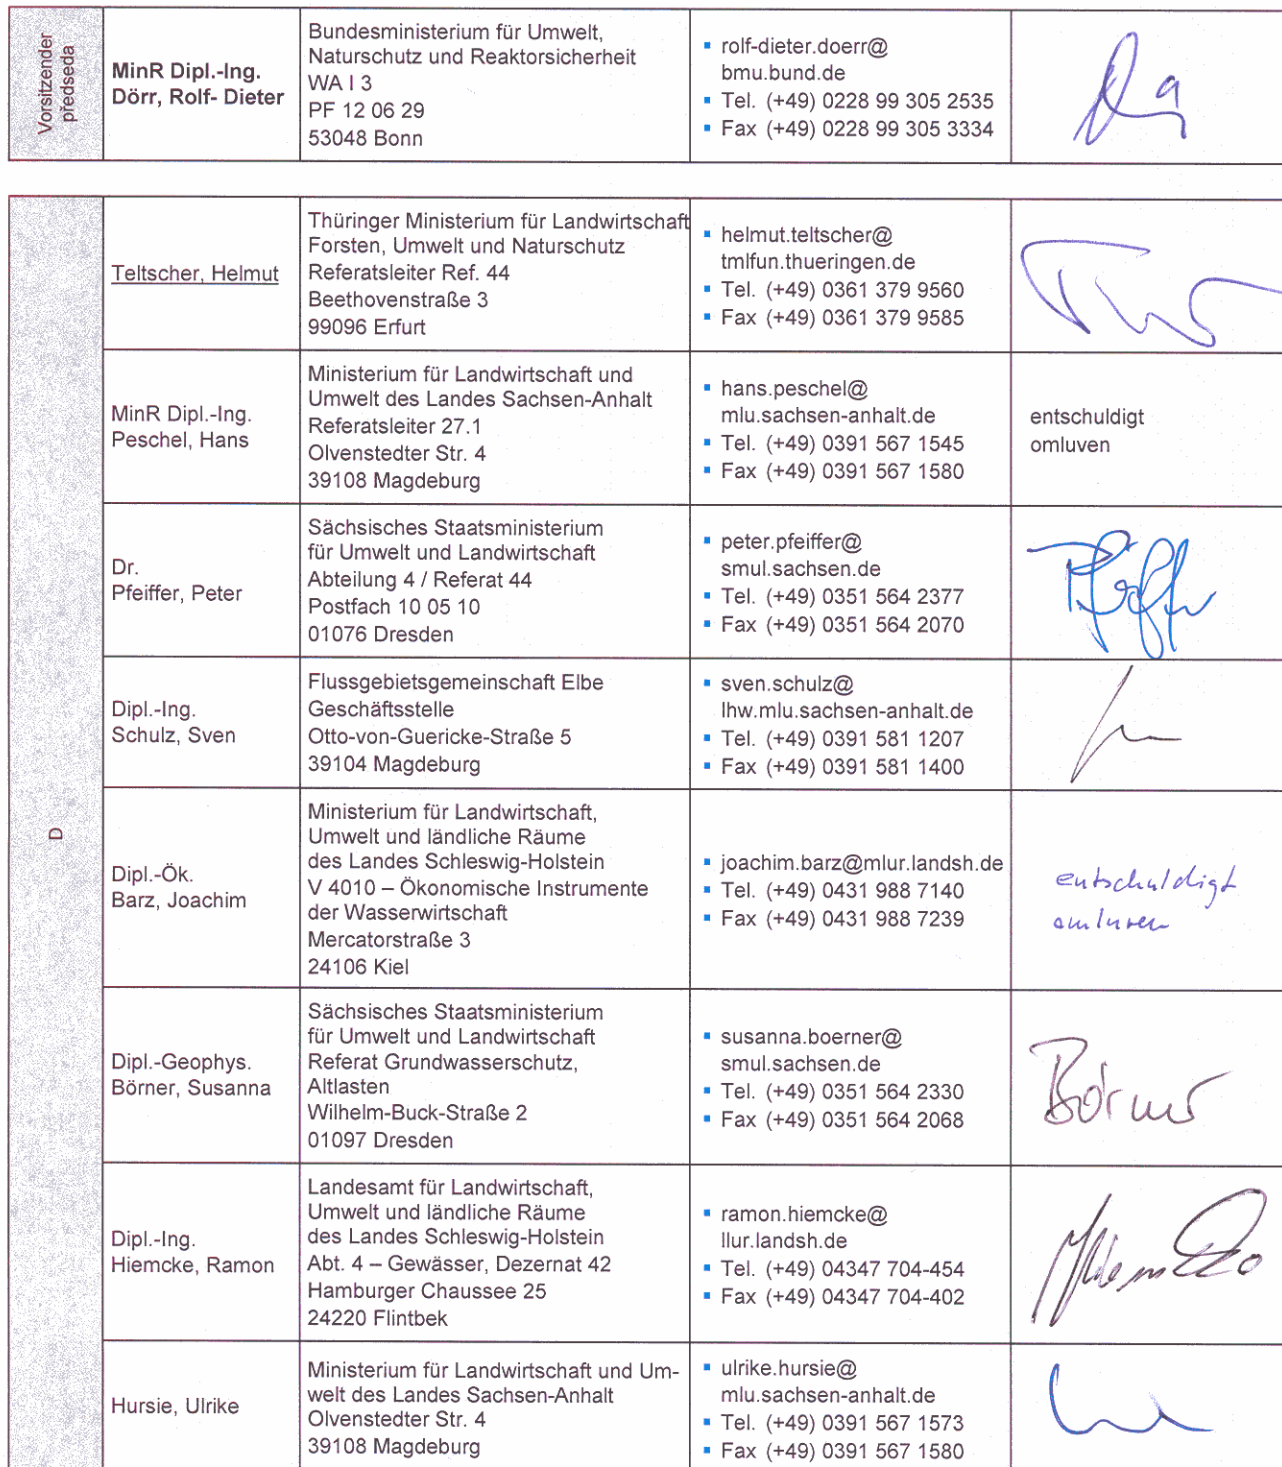 Vorsitzender
předseda
MinR Dipl.-Ing.
Dörr, Rolf- Dieter
Bundesministerium für Umwelt,
Naturschutz und Reaktorsicherheit
WA I 3
PF 12 06 29
53048 Bonn
rolf-dieter.doerr@
bmu.bund.de
Tel. (+49) 0228 99 305 2535
Fax (+49) 0228 99 305 3334
D
Teltscher, Helmut
Thüringer Ministerium für Landwirtschaft
Forsten, Umwelt und Naturschutz
Referatsleiter Ref. 44
Beethovenstraße 3
99096 Erfurt
helmut.teltscher@
tmlfun.thueringen.de
Tel. (+49) 0361 379 9560
Fax (+49) 0361 379 9585
MinR Dipl.-Ing.
Peschel, Hans
Ministerium für Landwirtschaft und
Umwelt des Landes Sachsen-Anhalt
Referatsleiter 27.1
Olvenstedter Str. 4
39108 Magdeburg
hans.peschel@
mlu.sachsen-anhalt.de
Tel. (+49) 0391 567 1545
Fax (+49) 0391 567 1580
entschuldigt
omluven
Dr.
Pfeiffer, Peter
Sächsisches Staatsministerium
für Umwelt und Landwirtschaft
Abteilung 4 / Referat 44
Postfach 10 05 10
01076 Dresden
peter.pfeiffer@
smul.sachsen.de
Tel. (+49) 0351 564 2377
Fax (+49) 0351 564 2070
Dipl.-Ing.
Schulz, Sven
Flussgebietsgemeinschaft Elbe
Geschäftsstelle
Otto-von-Guericke-Straße 5
39104 Magdeburg
sven.schulz@
lhw.mlu.sachsen-anhalt.de
Tel. (+49) 0391 581 1207
Fax (+49) 0391 581 1400
Dipl.-Ök.
Barz, Joachim
Ministerium für Landwirtschaft,
Umwelt und ländliche Räume
des Landes Schleswig-Holstein
V 4010 – Ökonomische Instrumente
der Wasserwirtschaft
Mercatorstraße 3
24106 Kiel
joachim.barz@mlur.landsh.de
Tel. (+49) 0431 988 7140
Fax (+49) 0431 988 7239
entschuldigt
omluven
Dipl.-Geophys.
Börner, Susanna
Sächsisches Staatsministerium
für Umwelt und Landwirtschaft
Referat Grundwasserschutz,
Altlasten
Wilhelm-Buck-Straße 2
01097 Dresden
susanna.boerner@
smul.sachsen.de
Tel. (+49) 0351 564 2330
Fax (+49) 0351 564 2068
Börner
Dipl.-Ing.
Hiemcke, Ramon
Landesamt für Landwirtschaft,
Umwelt und ländliche Räume
des Landes Schleswig-Holstein
Abt. 4 – Gewässer, Dezernat 42
Hamburger Chaussee 25
24220 Flintbek
ramon.hiemcke@
llur.landsh.de
Tel. (+49) 04347 704-454
Fax (+49) 04347 704-402
Hursie, Ulrike
Ministerium für Landwirtschaft und Um-
welt des Landes Sachsen-Anhalt
Olvenstedter Str. 4
39108 Magdeburg
ulrike.hursie@
mlu.sachsen-anhalt.de
Tel. (+49) 0391 567 1573
Fax (+49) 0391 567 1580